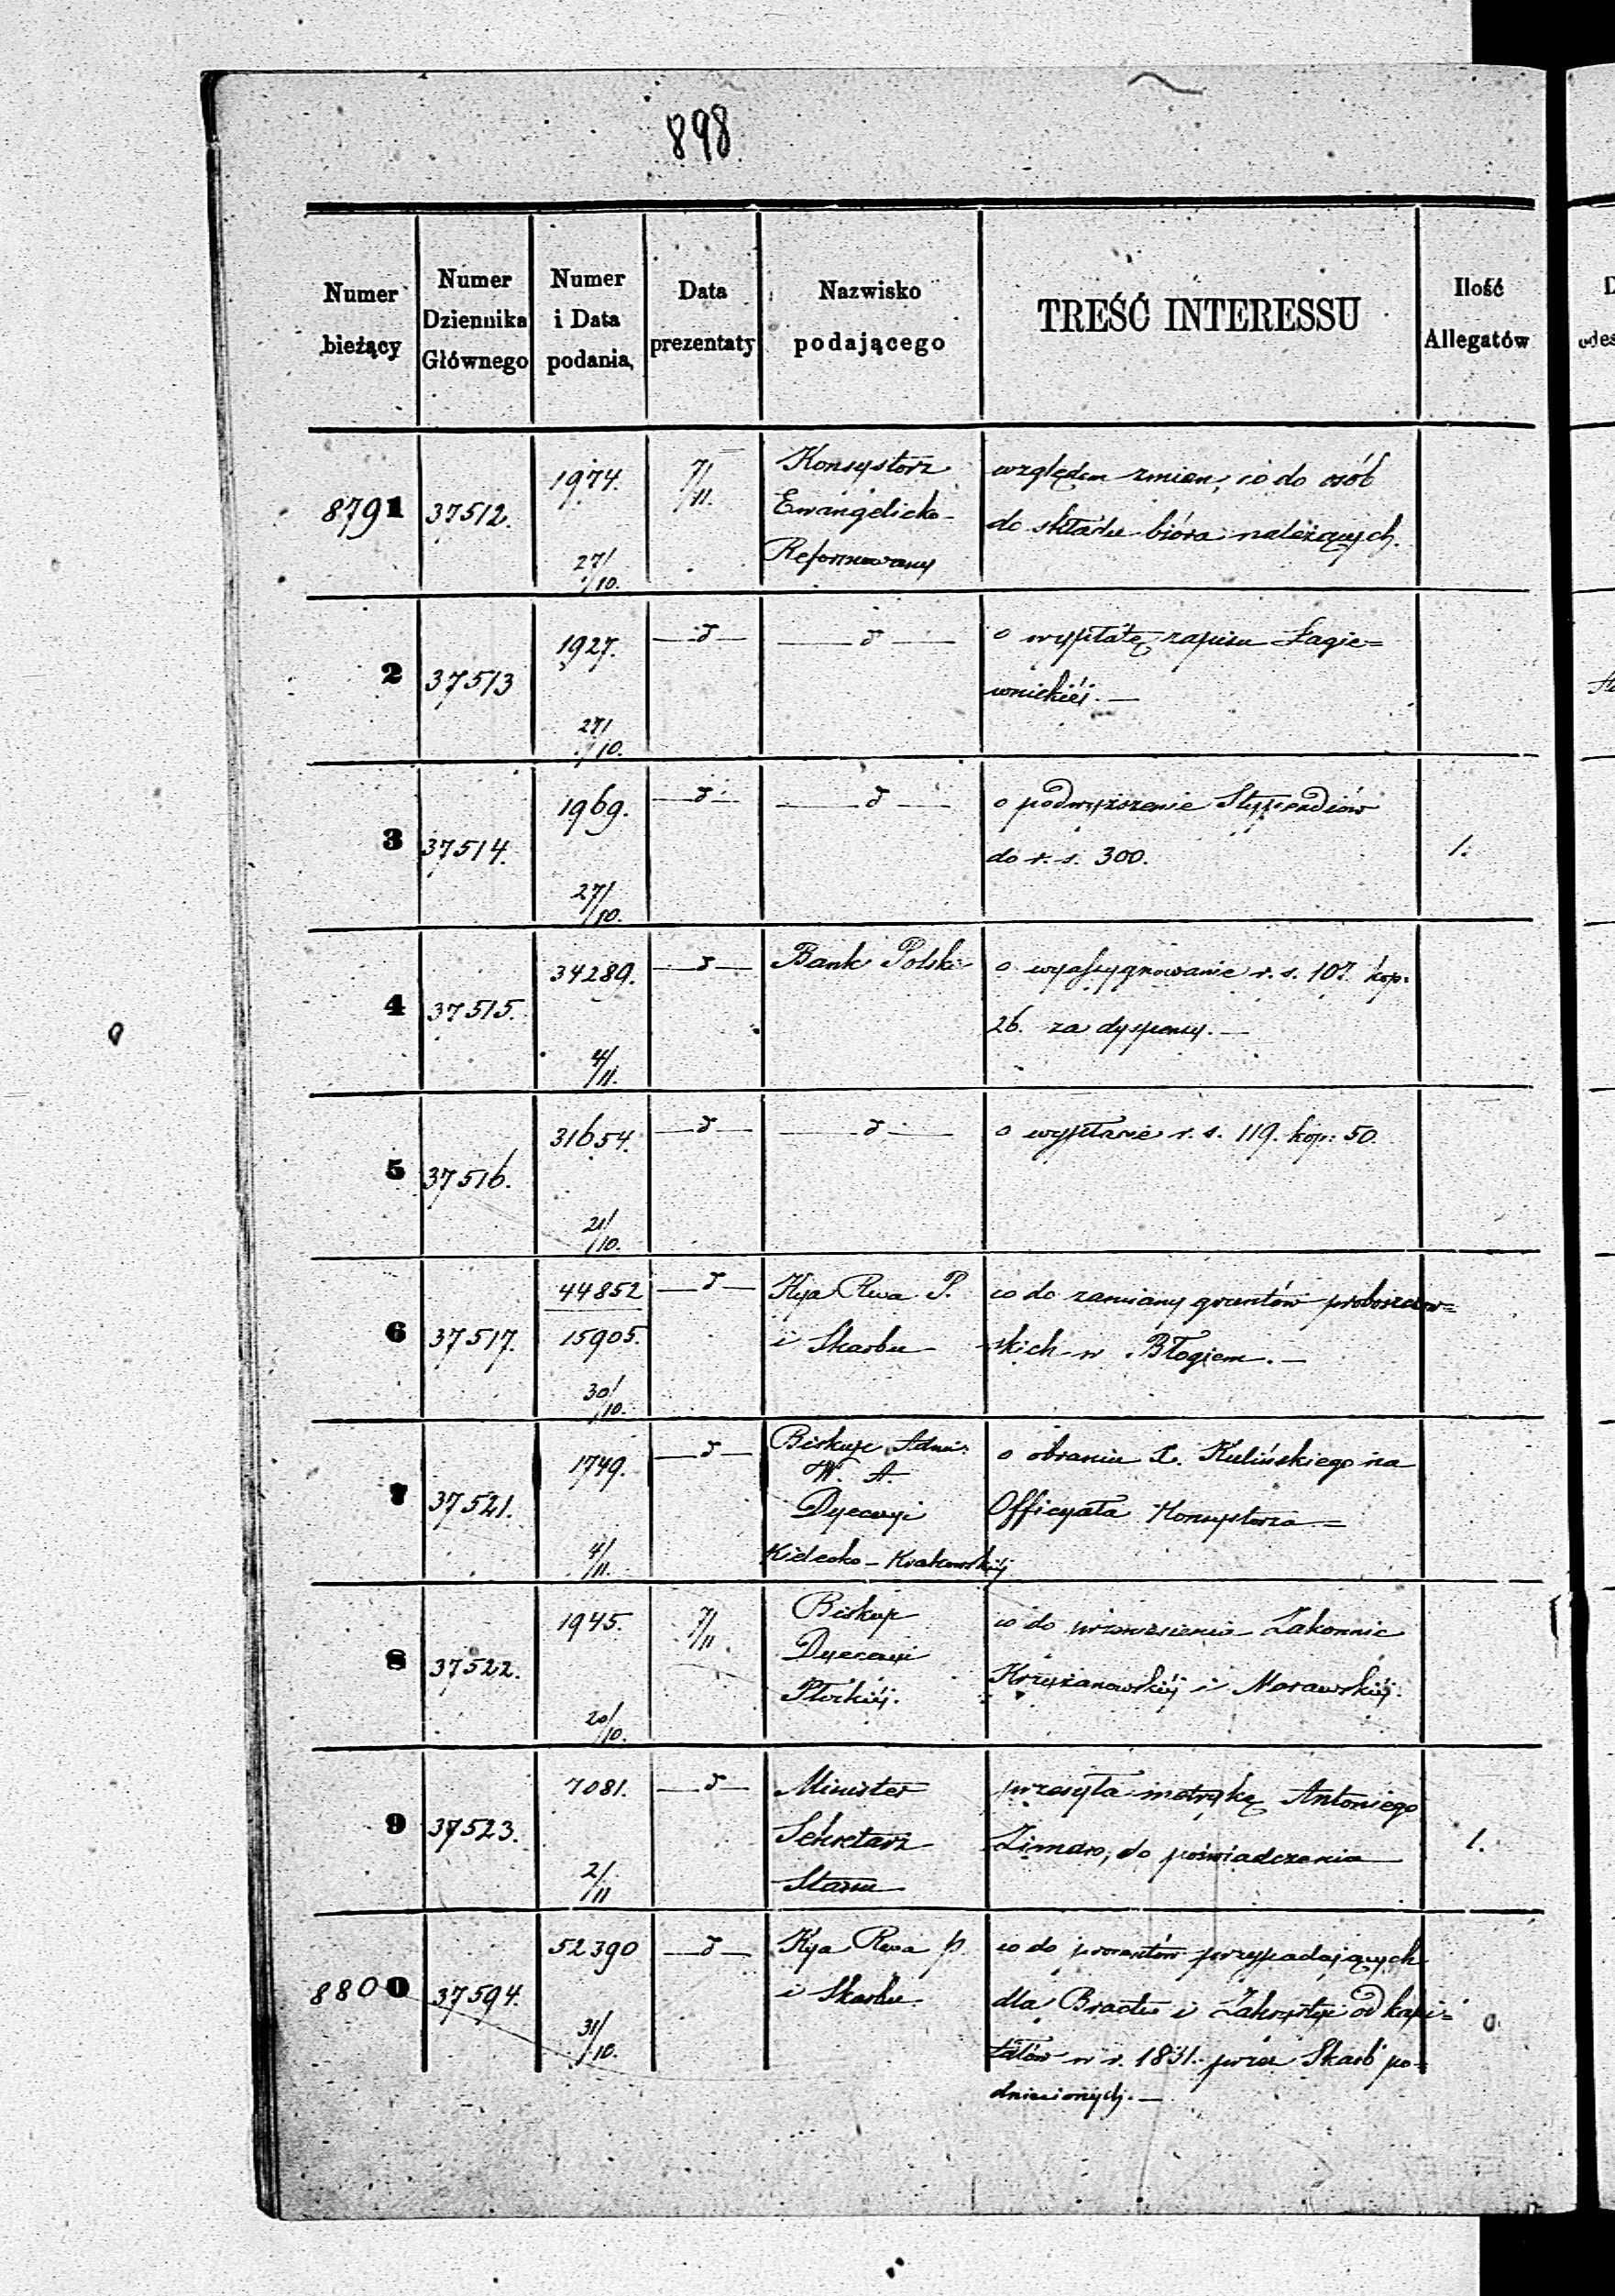 898
Numer bieżący
Numer Dziennika Głównego
Numer i Data podania,
Data prezentaty
Nazwisko podającego
TREŚĆ INTERESSU
Ilość Allegatów
8791 37512. 1974. 27/10. 7/11. Konsystorz Ewangelicko-Reformowany
względem zmian, co do osób
do składu bióra należących.
2 37513 1927. 27/10. d d
o wypłatę zapisu Łagie=
wnickiéj. —
3 37514. 1969. 27/10. d d
o podwyższenie Stypendiów
do r. s. 300. 1.
4 37515. 34289. 4/11. d Bank Polski
o wyassygnowanie r. s. 107. kop.
26. za dyspensy. —
5 37516. 31654. 21/10. d d
o wypłacenie r. s. 119. kop: 50.
6 37517. 44852 15905. 30/10. d Kya Rwa P. i Skarbu
co do zamiany gruntów proboszczow=
skich w Błogiem. —
7 37521. 1749. 4/11. d Biskup Admi: W. A. Dyecezyi Kielecko-Krakowskiéj
o obraniu X. Kulińskiego na
Officyała Konsystorza =
8 37522. 1945. 20/10. 7/11. Biskup Dyecezyi Płockiéj.
co do Zakonnic
Krzyżanowskiéj i Morawskiéj.
9 37523. 7081. 2/11 d Minister Sekretarz Stanu
przesyła metrykę Antoniego
do poświadczenia 1.
8800 37594. 52390 31/10. d Kya Rwa p. i Skarbu.
co do procentów przypadających
dla Bractw i Zakrystyi od kapi=
tałów w r. 1831. przez Skarb po=
dniesionych. —